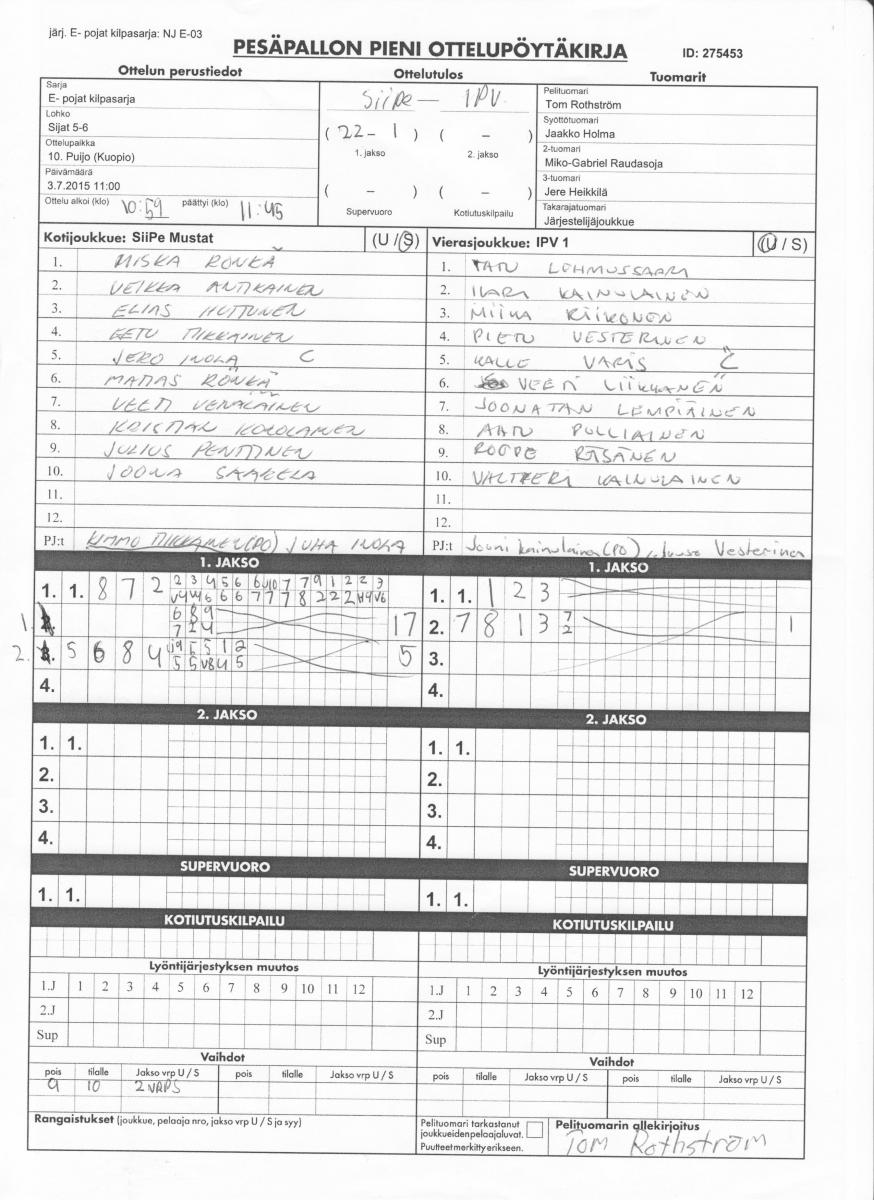 järj. E- pojat kilpasarja: NJ E-03
PESÄPALLON PIENI OTTELUPÖYTÄKIRJA
ID: 275453
Ottelun perustiedot
Sarja
E- pojat kilpasarja
Lohko
Sijat 5-6
Ottelupaikka
10. Puijo (Kuopio)
Päivämäärä
3.7.2015 11:00
Ottelu alkoi (klo) 10:59 päättyi (klo) 11:45
Ottelutulos
SiiPe — IPV
( 22 - 1 ) ( - )
1. jakso 2. jakso
( - ) ( - )
Supervuoro Kotiutuskilpailu
Tuomarit
Pelituomari
Tom Rothström
Syöttötuomari
Jaakko Holma
2-tuomari
Miko-Gabriel Raudasoja
3-tuomari
Jere Heikkilä
Takarajatuomari
Järjestelijäjoukkue
Kotijoukkue: SiiPe Mustat (U / S)
1. MISKA RÖNKÄ
2. VEIKKA ANTIKAINEN
3. ELIAS HUTTUNEN
4. EETU MIKKAINEN
5. JERO INOLA C
6. RÖNKÄ
7. VEETI VENÄLÄINEN
8. KOLOLAINEN
9. JULIUS PENTTINEN
10. JOONA SAARELA
11.
12.
PJ:t KIMMO MIKKAINEN (PO) JUHA INOLA
Vierasjoukkue: IPV 1 (U / S)
1. TATU LEHMUSSAARI
2. ILARI KAINULAINEN
3. MIIKA RIIKONEN
4. PIETU VESTERINEN
5. KALLE VARIS C
6. VEETI LIIKKANEN
7. JOONATAN LEMPIÄINEN
8. AATU PULLIAINEN
9. ROOPE RÄSÄNEN
10. VALTTERI KAINULAINEN
11.
12.
PJ:t Jouni Kainulainen (PO), Juuso Vesterinen
1. JAKSO
1. 1. 8 7 2 2 3 4 5 6 6 10 7 7 9 1 2 2 3
6 6 6 7 7 7 8 2 2 2
1. 6 8 9 17
7 2 4
2. 5 6 8 4 5 5 1 2 5
5 5 V8 4 5
4.
1. JAKSO
1. 1. 1 2 3
2. 7 8 1 3 7 1
2
3.
4.
2. JAKSO
1. 1.
2.
3.
4.
2. JAKSO
1. 1.
2.
3.
4.
SUPERVUORO
1. 1.
SUPERVUORO
1. 1.
KOTIUTUSKILPAILU
KOTIUTUSKILPAILU
Lyöntijärjestyksen muutos
1.J 1 2 3 4 5 6 7 8 9 10 11 12
2.J
Sup
Lyöntijärjestyksen muutos
1.J 1 2 3 4 5 6 7 8 9 10 11 12
2.J
Sup
Vaihdot
pois tilalle Jakso vrp U / S pois tilalle Jakso vrp U / S
9 10 2VRPS
Vaihdot
pois tilalle Jakso vrp U / S pois tilalle Jakso vrp U / S
Rangaistukset (joukkue, pelaaja nro, jakso vrp U / S ja syy)
Pelituomari tarkastanut
joukkueidenpelaajaluvat.
Puutteet merkitty erikseen.
Pelituomarin allekirjoitus
Tom Rothström